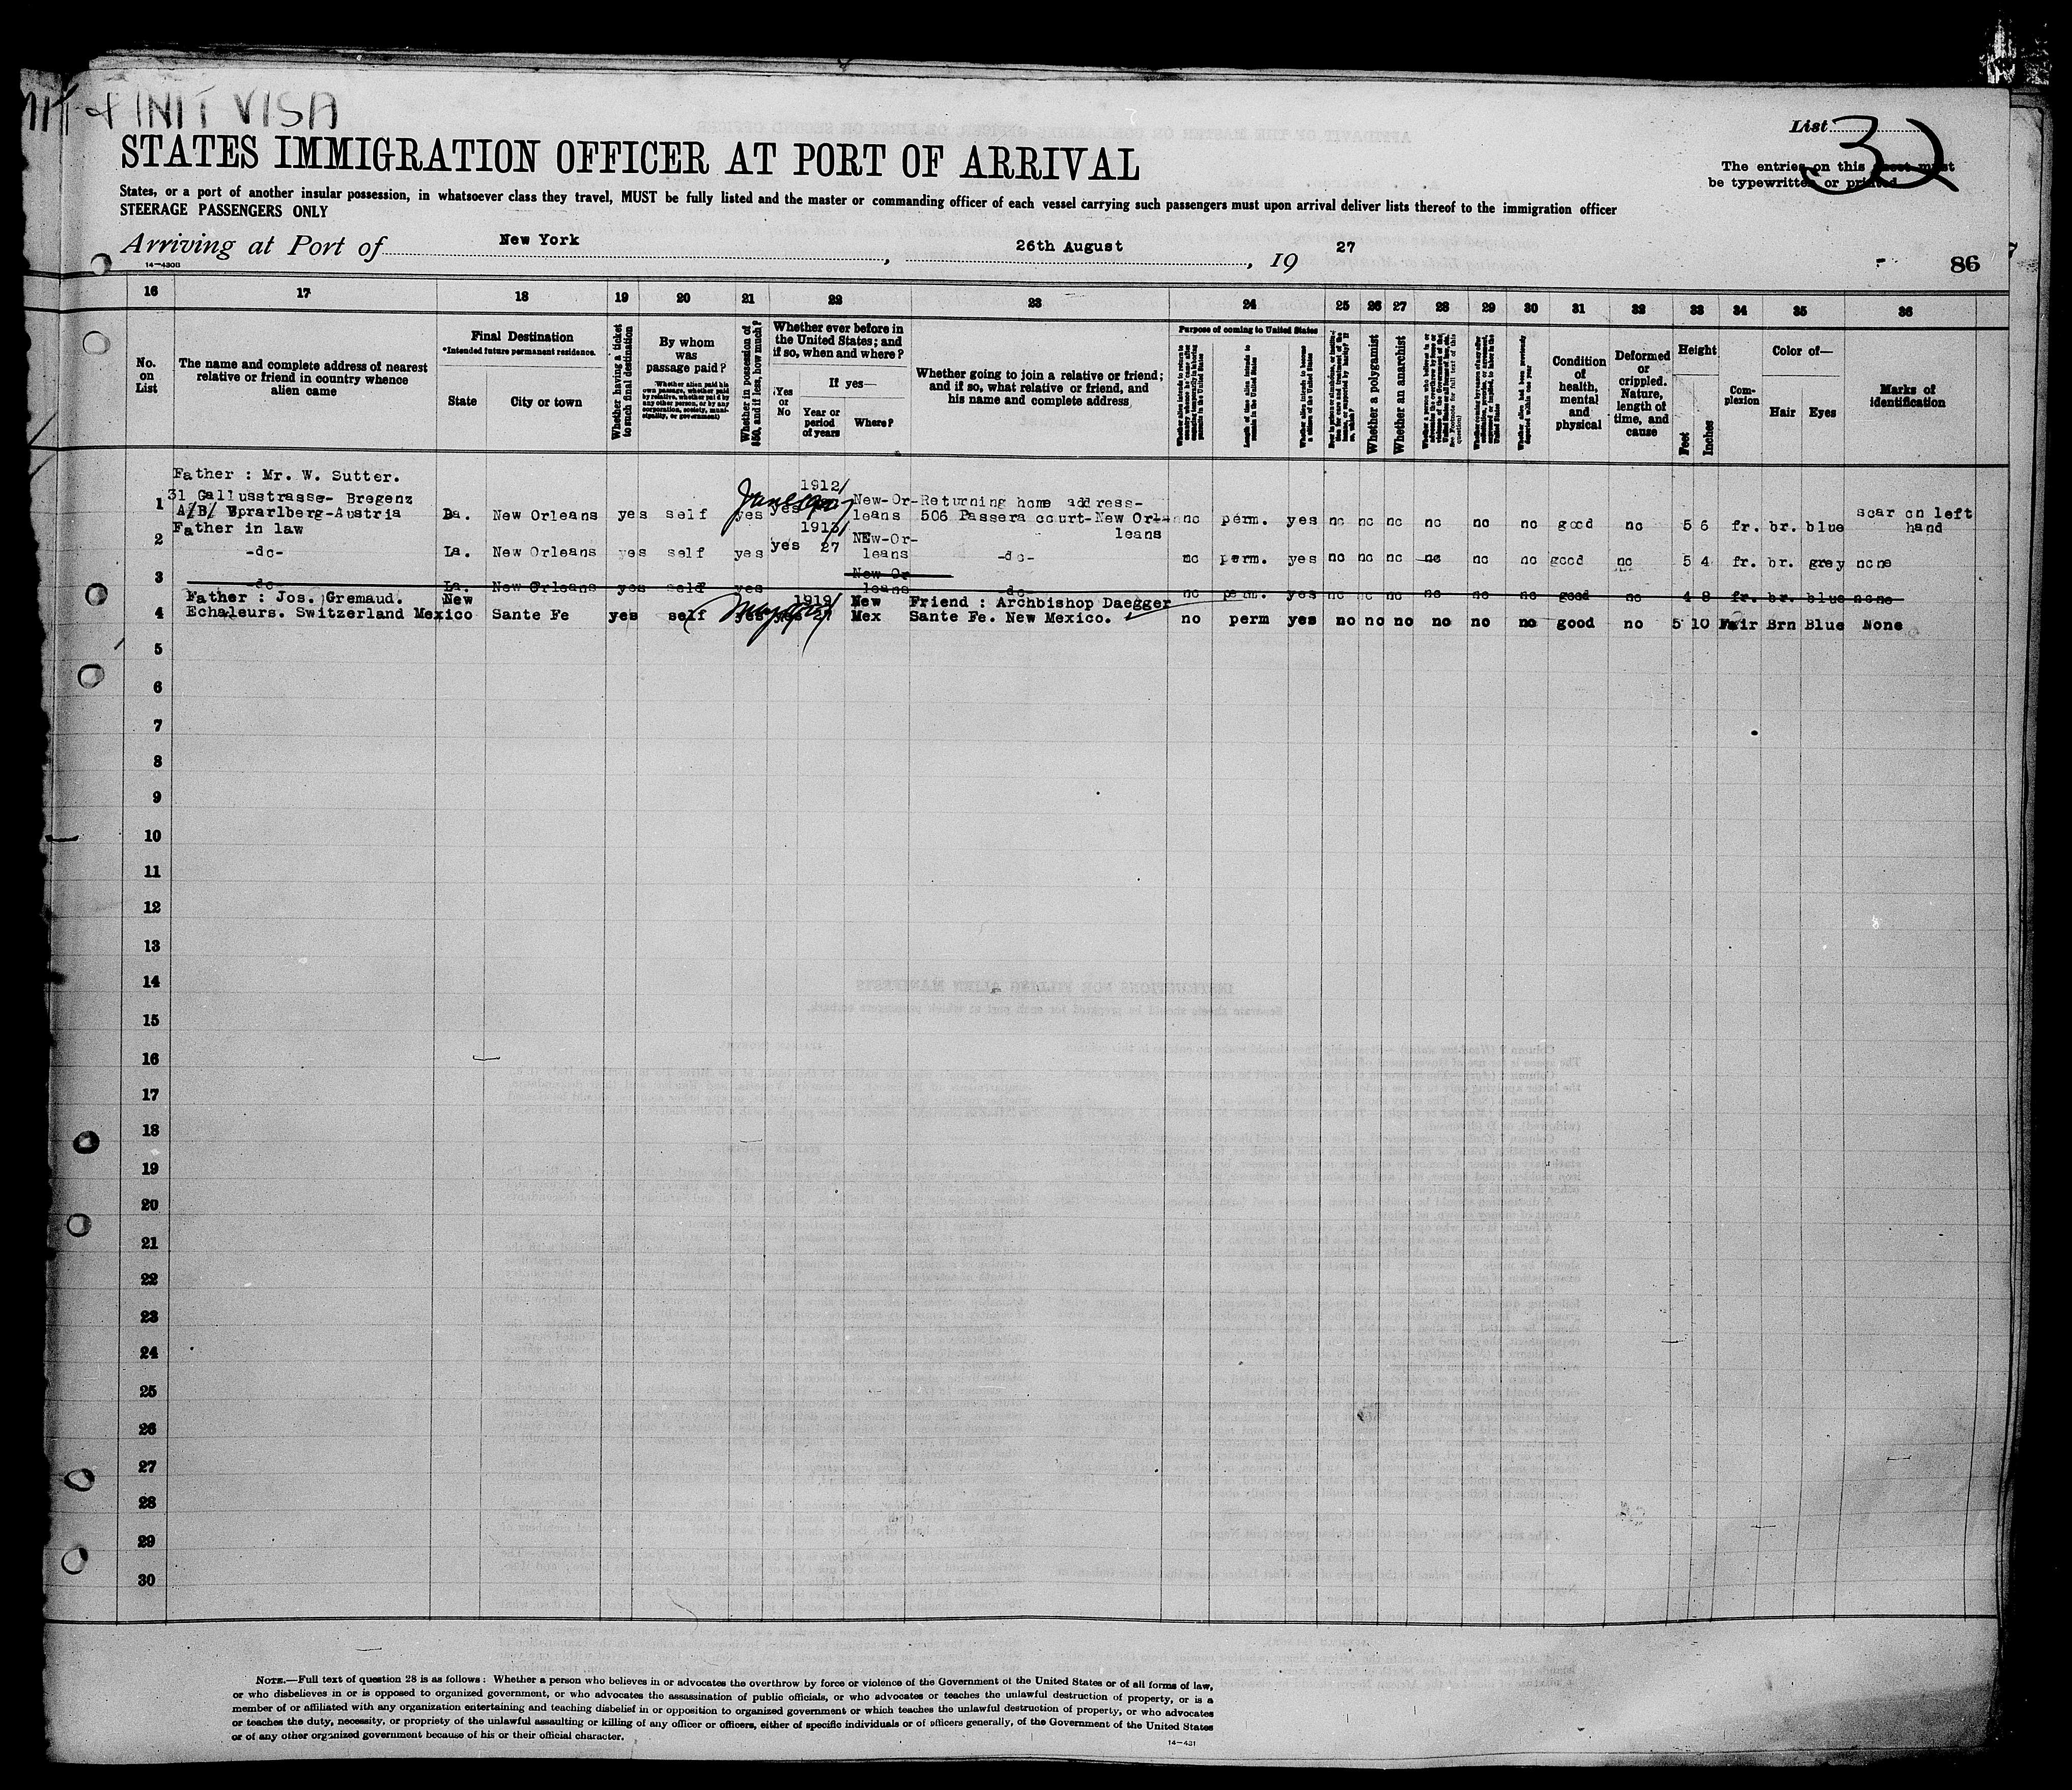 FINIT VISA
List 32
STATES IMMIGRATION OFFICER AT PORT OF ARRIVAL
The entries on this sheet must
be typewritten or printed
States, or a port of another insular possession, in whatsoever class they travel, MUST be fully listed and the master or commanding officer of each vessel carrying such passengers must upon arrival deliver lists thereof to the immigration officer
STEERAGE PASSENGERS ONLY
Arriving at Port of New York, 26th August, 19 27
14-430B
86
16 17 18 19 20 21 22 23 24 25 26 27 28 29 30 31 32 33 34 35 36
No. on List
The name and complete address of nearest relative or friend in country whence alien came
Final Destination
*Intended future permanent residence.
State
City or town
Whether having a ticket to such final destination
By whom was passage paid?
(Whether alien paid his own passage, whether paid by relative, whether paid by any other person, or by any corporation, society, municipality, or government)
Whether in possession of $50, and if less, how much?
Whether ever before in the United States; and if so, when and where?
Yes or No
If yes—
Year or period of years
Where?
Whether going to join a relative or friend; and if so, what relative or friend, and his name and complete address
Purpose of coming to United States
Length of time alien intends to remain in the United States
Whether alien intends to become a citizen of the United States
Whether a polygamist
Whether an anarchist
Condition of health, mental and physical
Deformed or crippled. Nature, length of time, and cause
Height
Feet
Inches
Complexion
Color of—
Hair
Eyes
Marks of identification
Father : Mr. W. Sutter.
1 31 Gallusstrasse- Bregenz
A/B/ Vorarlberg-Austria La. New Orleans yes self yes yes 1912/ New-Orleans Returning home address- 506 Passera court-New Orleans no perm. yes no no no no no no good no 5 6 fr. br. blue scar on left hand
Father in law
2 -do- La. New Orleans yes self yes yes 1913/27 NEw-Orleans -do- no perm. yes no no no no no no good no 5 4 fr. br. grey none
3 -do- La. New Orleans yes self yes New Orleans -do- no perm. yes no no no no no no good no 4 8 fr. br. blue none
Father : Jos. Gremaud.
4 Echaleurs. Switzerland New Mexico Sante Fe yes self yes yes 1919/27 New Mex Friend : Archbishop Daegger Sante Fe. New Mexico. no perm yes no no no no no no good no 5 10 Fair Brn Blue None
5
6
7
8
9
10
11
12
13
14
15
16
17
18
19
20
21
22
23
24
25
26
27
28
29
30
NOTE.—Full text of question 28 is as follows: Whether a person who believes in or advocates the overthrow by force or violence of the Government of the United States or of all forms of law,
or who disbelieves in or is opposed to organized government, or who advocates the assassination of public officials, or who advocates or teaches the unlawful destruction of property, or is a
member of or affiliated with any organization entertaining and teaching disbelief in or opposition to organized government or which teaches the unlawful destruction of property, or who advocates
or teaches the duty, necessity, or propriety of the unlawful assaulting or killing of any officer or officers, either of specific individuals or of officers generally, of the Government of the United States
or of any other organized government because of his or their official character.
14-431